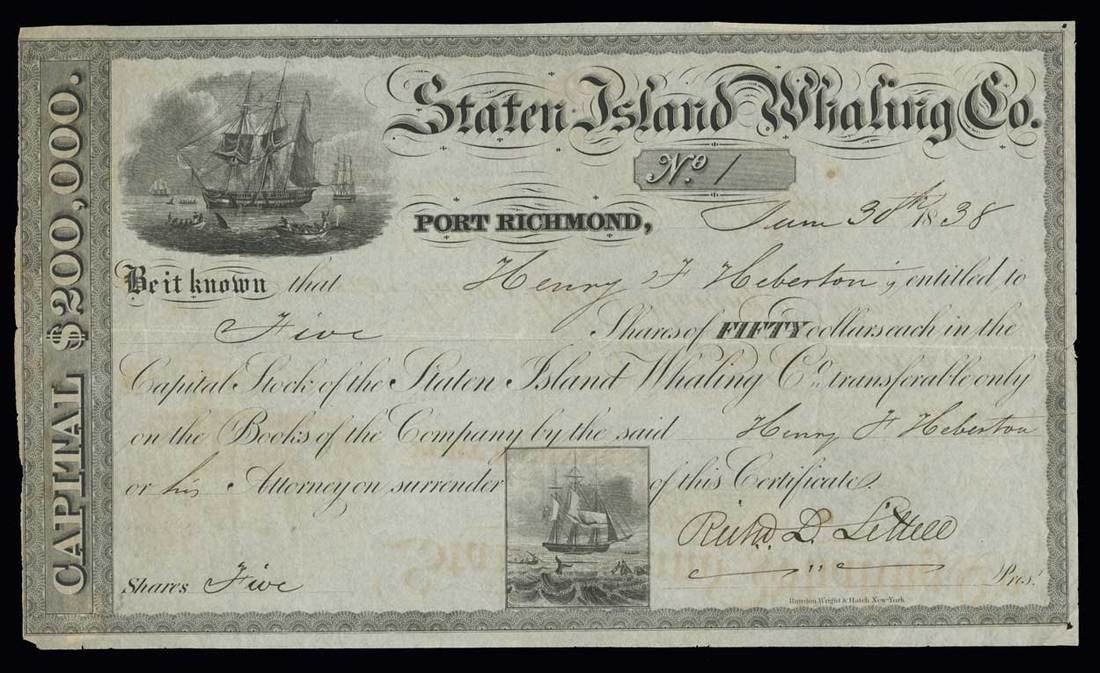 CAPITAL $200,000.
Staten Island Whaling Co.
No. 1
PORT RICHMOND, June 30th 1838
Be it known that Henry F Heberton is entitled to
Five Shares of FIFTY dollars each in the
Capital Stock of the Staten Island Whaling Co. transferable only
on the Books of the Company by the said Henry F Heberton
or his Attorney on surrender of this Certificate.
Richd. D. Littell
Shares Five Pres.
Rawdon, Wright & Hatch New-York